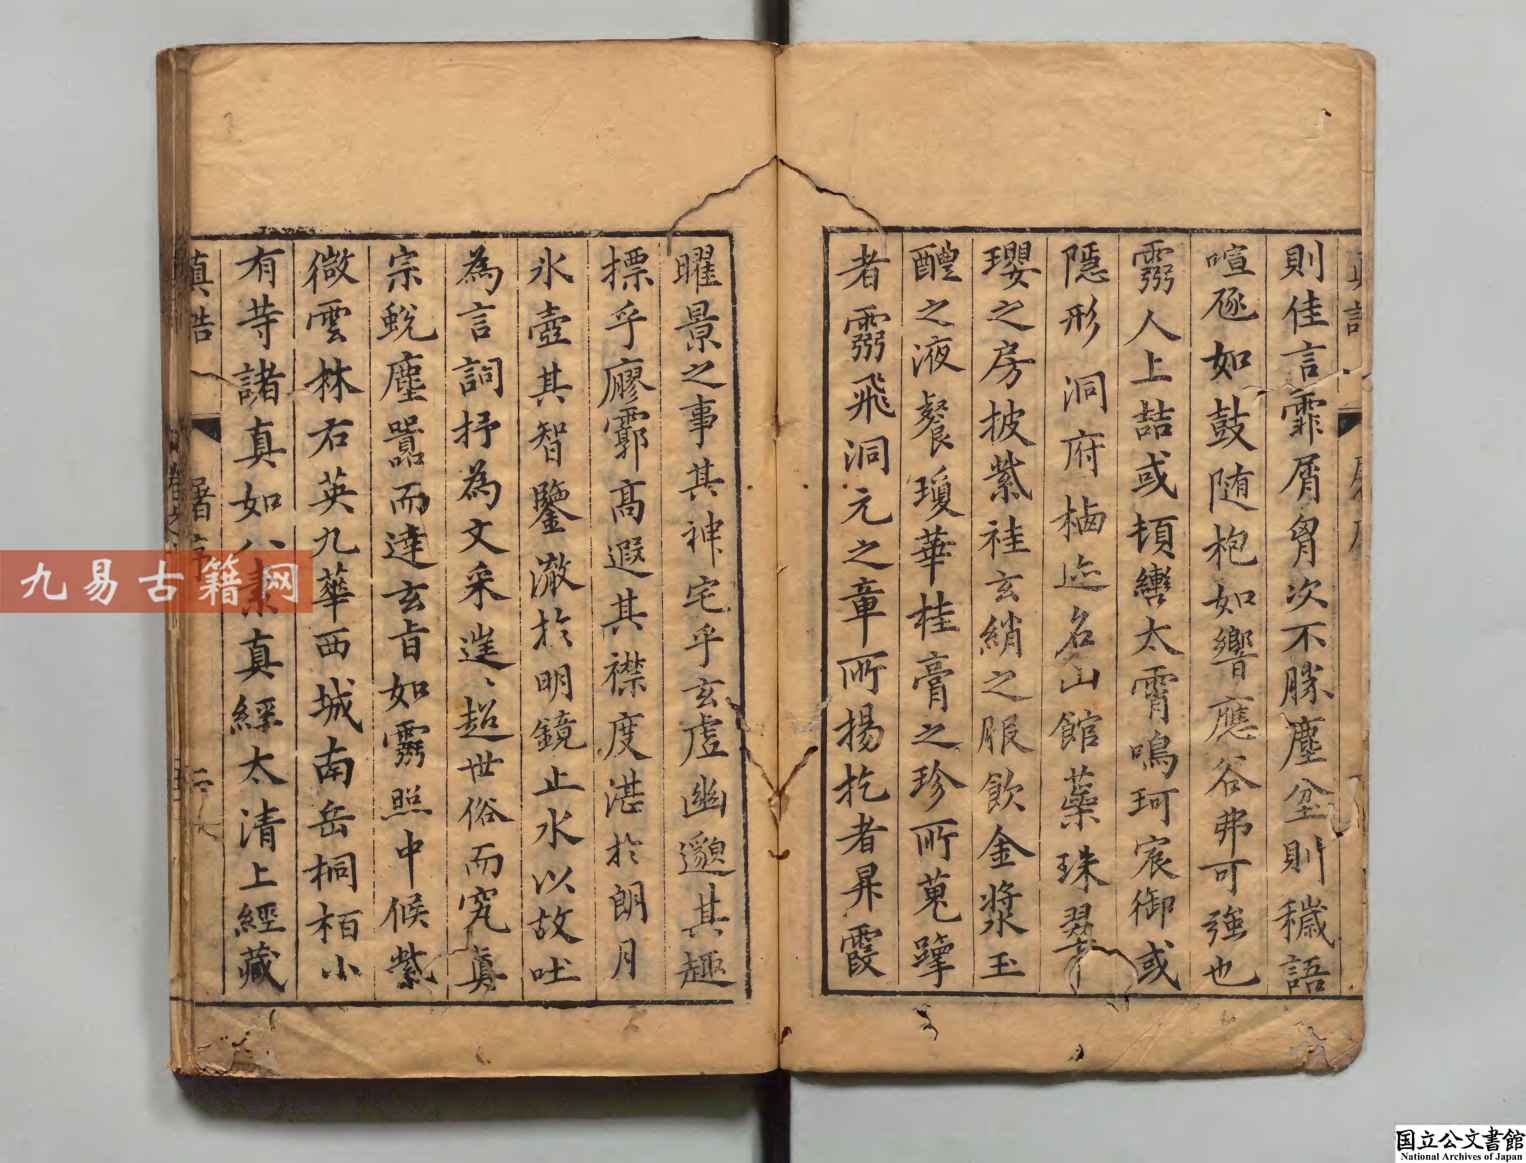 則佳言霏屑胷次不勝塵坌則穢語
喧豗如鼓随枹如響應谷弗可強也
霛人上喆或頓轡太霄鳴珂宸御或
隱形洞府棲迹名山館蘂珠翠
瓔之房披紫袿玄綃之服飲金漿玉
醴之液餐瓊華桂膏之珍所蒐躋
者霛飛洞元之章所揚扢者昇霞
曜景之事其神宅乎玄虛幽邈其趣
摽乎廫霩高遐其襟度湛於朗月
氷壺其智鑒澈於明鏡止水以故吐
為言詞抒為文采邈超世俗而究真
宗蛻塵嚣而達玄旨如霛照中候紫
微雲林右英九華西城南岳桐栢小
有茅諸真如八素真經太清上經藏
真誥 屠序 二
九易古籍网
国立公文書館
National Archives of Japan